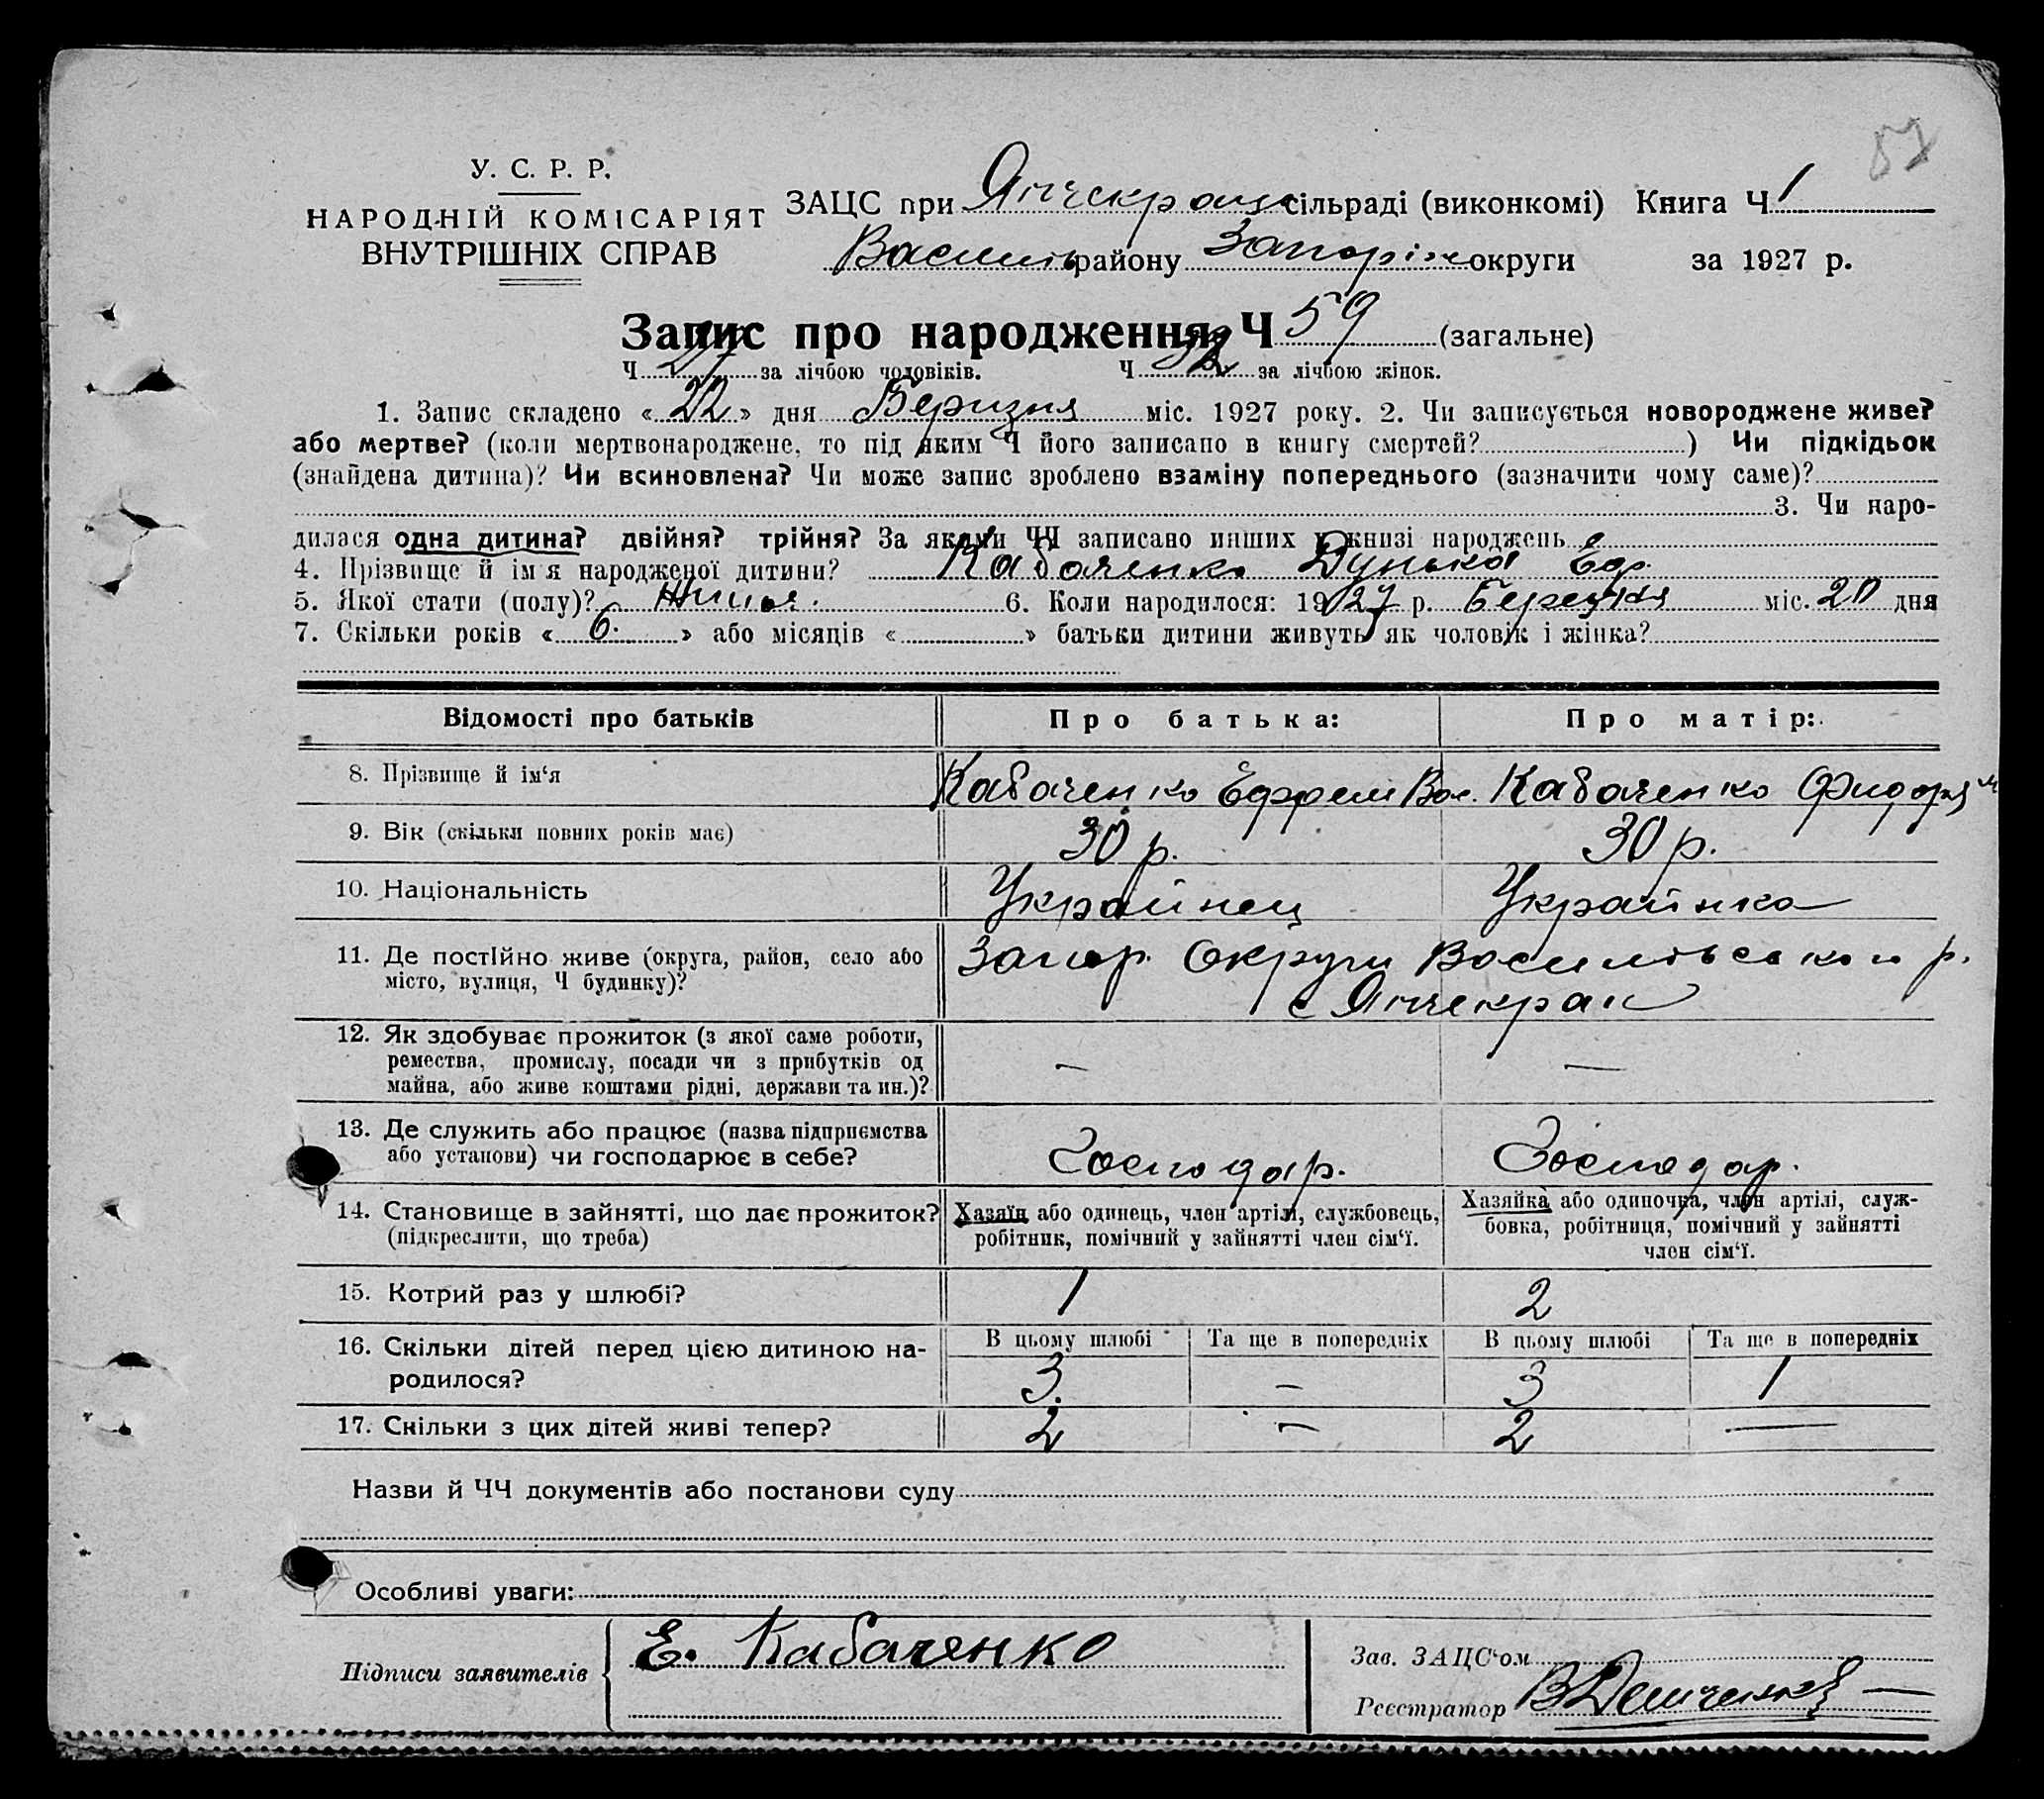 87
У. С. Р. Р.
НАРОДНІЙ КОМІСАРІЯТ
ВНУТРІШНІХ СПРАВ
ЗАЦС при Янчекрац сільраді (виконкомі) Книга Ч 1
Василь району Запоріж округи за 1927 р.
Запис про народження Ч 59 (загальне)
Ч 27 за лічбою чоловіків. Ч 32 за лічбою жінок.
1. Запис складено « 22 » дня Беризня міс. 1927 року. 2. Чи записується новороджене живе?
або мертве? (коли мертвонароджене, то під яким Ч його записано в книгу смертей? ) Чи підкідьок
(знайдена дитина)? Чи всиновлена? Чи може запис зроблено взаміну попереднього (зазначити чому саме)?
3. Чи наро-
дилася одна дитина? двійня? трійня? За якими ЧЧ записано инших у книзі народжень
4. Прізвище й ім'я народженої дитини? Кабаченко Дунька Еф.
5. Якої стати (полу)? 6. Коли народилося: 1927 р. Березня міс. 20 дня
7. Скільки років « 6. » або місяців « » батьки дитини живуть як чоловік і жінка?
Відомості про батьків Про батька: Про матір:
8. Прізвище й ім'я Кабаченко Ефрем Вас. Кабаченко
9. Вік (скільки повних років має) 30 р. 30 р.
10. Національність Украйнец Украйнка
11. Де постійно живе (округа, район, село або
місто, вулиця, Ч будинку)?
Запор. Округи Василівсокаго р.
с Янчекрак
12. Як здобуває прожиток (з якої саме роботи,
ремества, промислу, посади чи з прибутків од
майна, або живе коштами рідні, держави та ин.)?
— —
13. Де служить або працює (назва підприємства
або установи) чи господарює в себе?
Господар. Господар.
14. Становище в зайнятті, що дає прожиток?
(підкреслити, що треба)
Хазяїн або одинець, член артілі, службовець,
робітник, помічний у зайнятті член сім'ї.
Хазяйка або одиночка, член артілі, служ-
бовка, робітниця, помічний у зайнятті
член сім'ї.
15. Котрий раз у шлюбі? 1 2
16. Скільки дітей перед цією дитиною на-
родилося?
В цьому шлюбі Та ще в попередніх В цьому шлюбі Та ще в попередніх
3. — 3 1
17. Скільки з цих дітей живі тепер? 2 — 2 —
Назви й ЧЧ документів або постанови суду
Особливі уваги:
Підписи заявителів Е. Кабаченко
Зав. ЗАЦС'ом
Реєстратор В Демченко